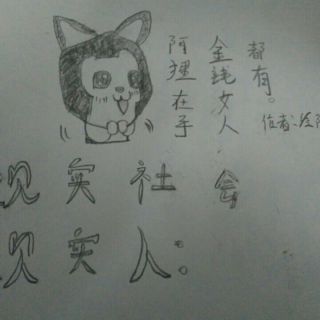 阿狸在手
金钱女人.
都有。
作者:
现实社会
现实人: